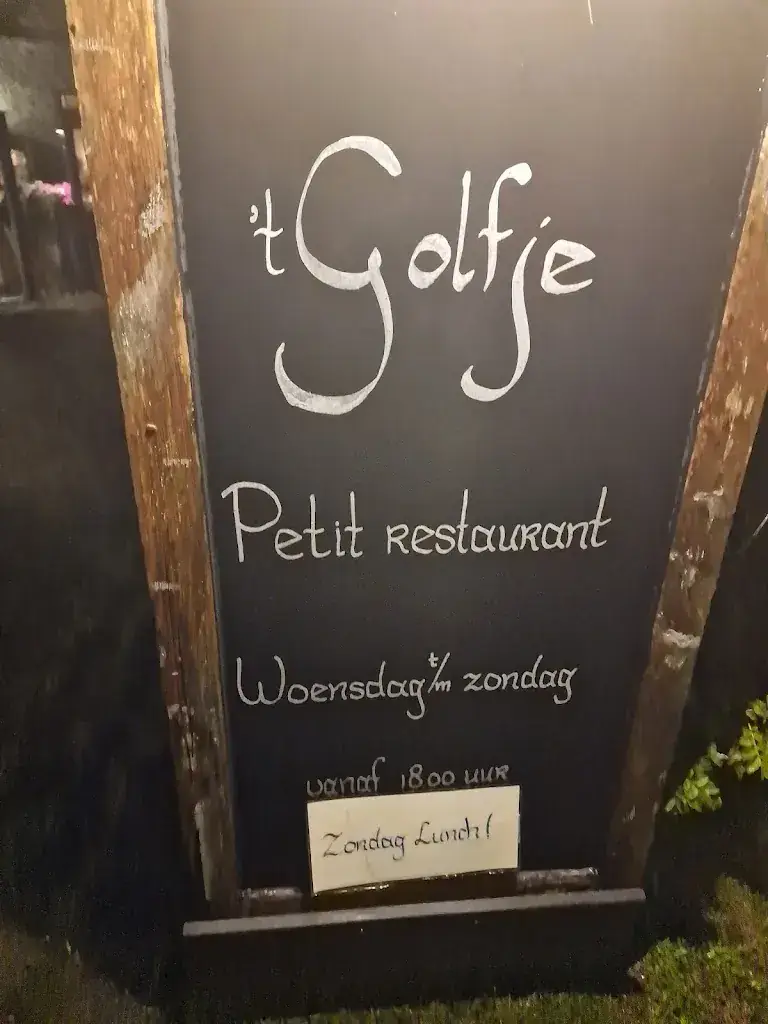 't Golfje
Petit restaurant
Woensdag t/m zondag
vanaf 1800 uur
Zondag Lunch!